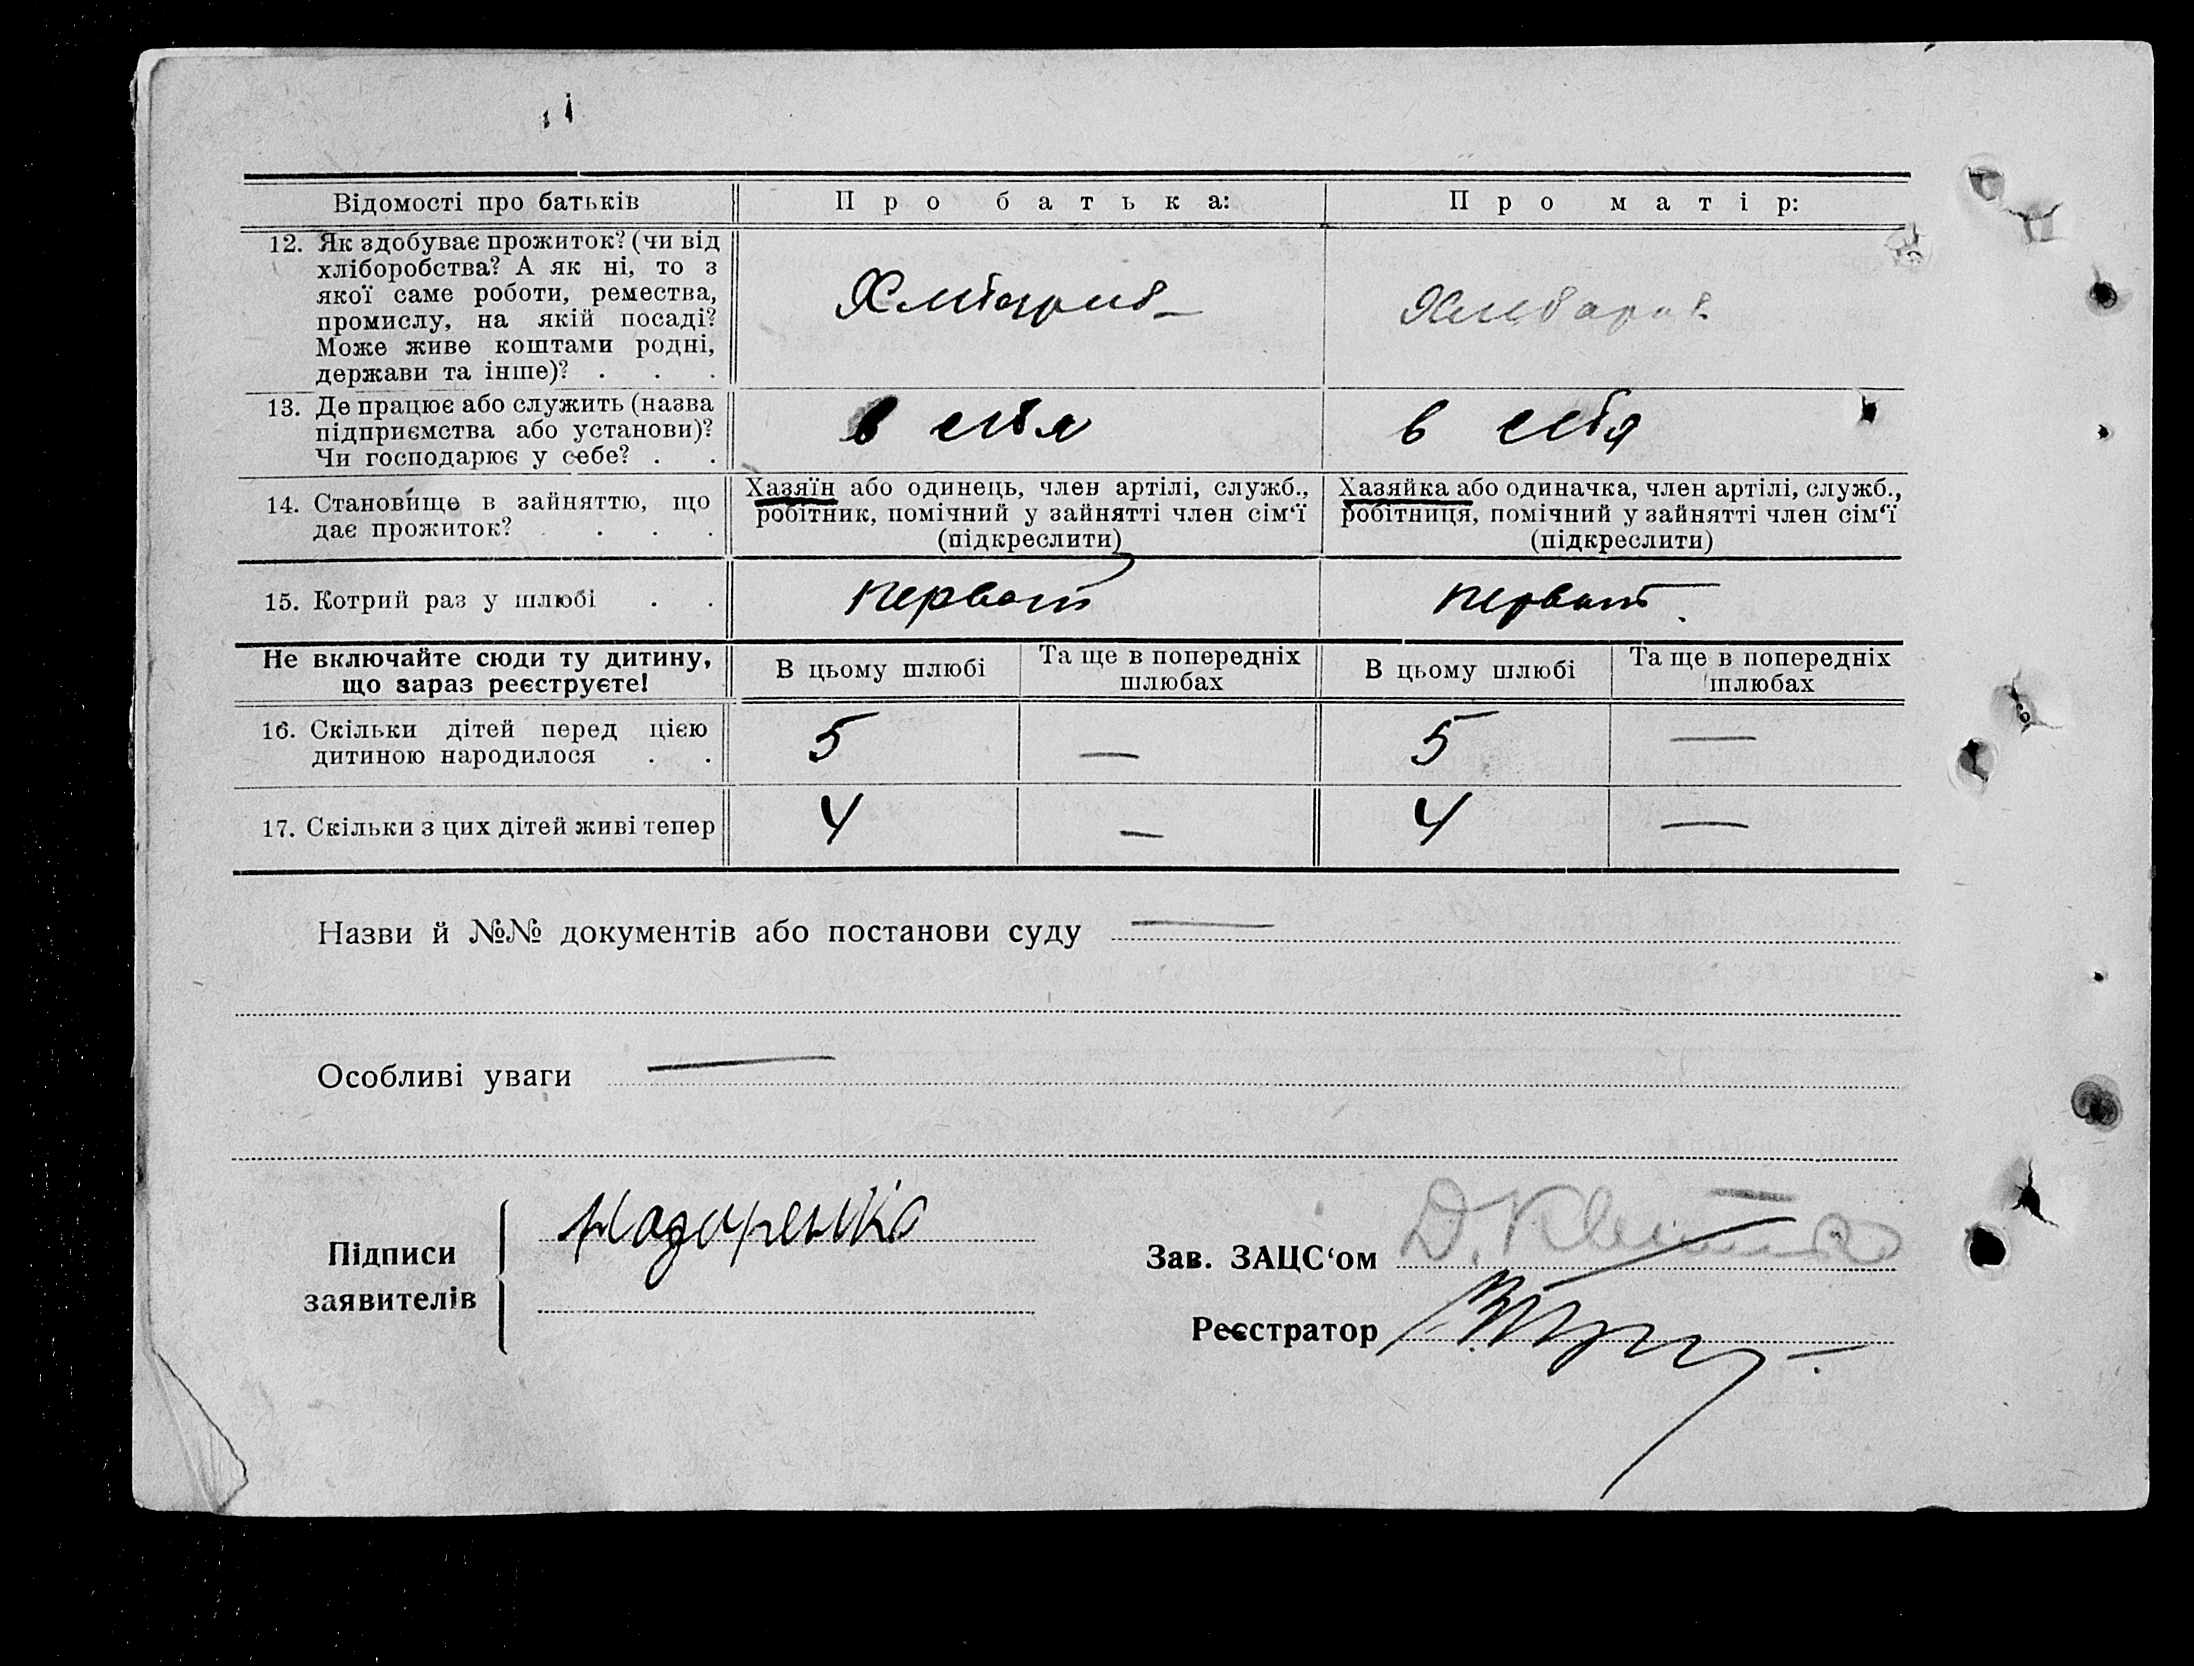 Відомості про батьків
Про батька:
Про матір:
12. Як здобуває прожиток? (чи від
хліборобства? А як ні, то з
якої саме роботи, ремества,
промислу, на якій посаді?
Може живе коштами родні,
держави та інше)? . . .
13. Де працює або служить (назва
підприємства або установи)?
Чи господарює у себе? . .
в себя
в себя
14. Становище в зайняттю, що
дає прожиток? . . .
Хазяїн або одинець, член артілі, служб.,
робітник, помічний у зайнятті член сім‘ї
(підкреслити)
Хазяйка або одиначка, член артілі, служб.,
робітниця, помічний у зайнятті член сім‘ї
(підкреслити)
15. Котрий раз у шлюбі . .
Не включайте сюди ту дитину,
що зараз реєструєте!
В цьому шлюбі
Та ще в попередніх
шлюбах
В цьому шлюбі
Та ще в попередніх
шлюбах
16. Скільки дітей перед цією
дитиною народилося . .
5
—
5
—
17. Скільки з цих дітей живі тепер
4
—
4
—
Назви й №№ документів або постанови суду —
Особливі уваги —
Підписи
заявителів
Назаренко
Зав. ЗАЦС‘ом
Реєстратор